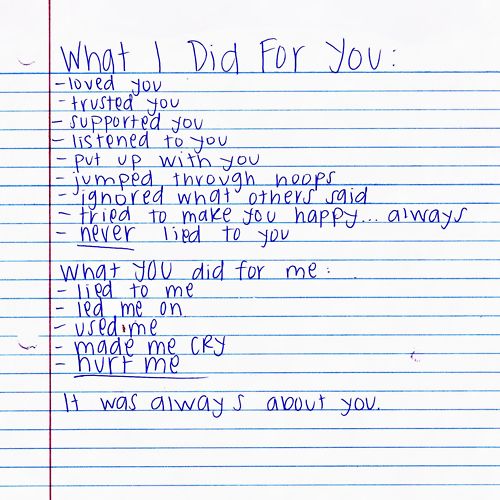 What I Did For You:
- loved you
- trusted you
- supported you
- listened to you
- put up with you
- jumped through hoops
- ignored what others said
- tried to make you happy... always
- never lied to you
What YOU did for me:
- lied to me
- led me on
- used me
- made me CRY
- hurt me
It was always about you.